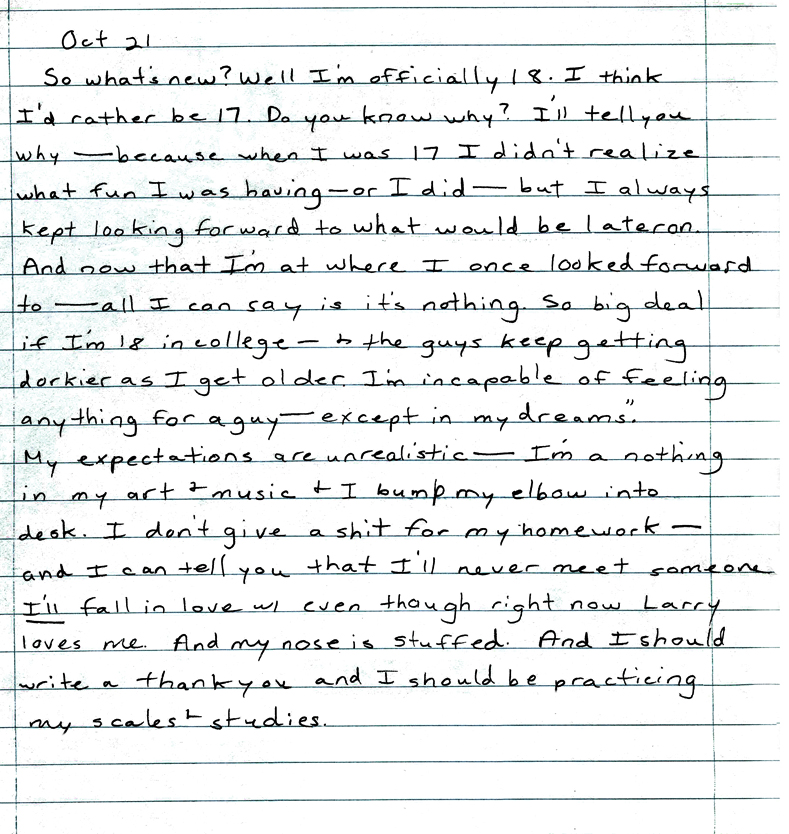 Oct 21
So what's new? Well I'm officially 18. I think
I'd rather be 17. Do you know why? I'll tell you
why — because when I was 17 I didn't realize
what fun I was having — or I did — but I always
kept looking forward to what would be later on.
And now that I'm at where I once looked forward
to — all I can say is it's nothing. So big deal
if I'm 18 in college — & the guys keep getting
dorkier as I get older. I'm incapable of feeling
anything for a guy — except in my dreams".
My expectations are unrealistic — I'm a nothing
in my art & music & I bump my elbow into
desk. I don't give a shit for my homework —
and I can tell you that I'll never meet someone
I'll fall in love w/ even though right now Larry
loves me. And my nose is stuffed. And I should
write a thank you and I should be practicing
my scales & studies.